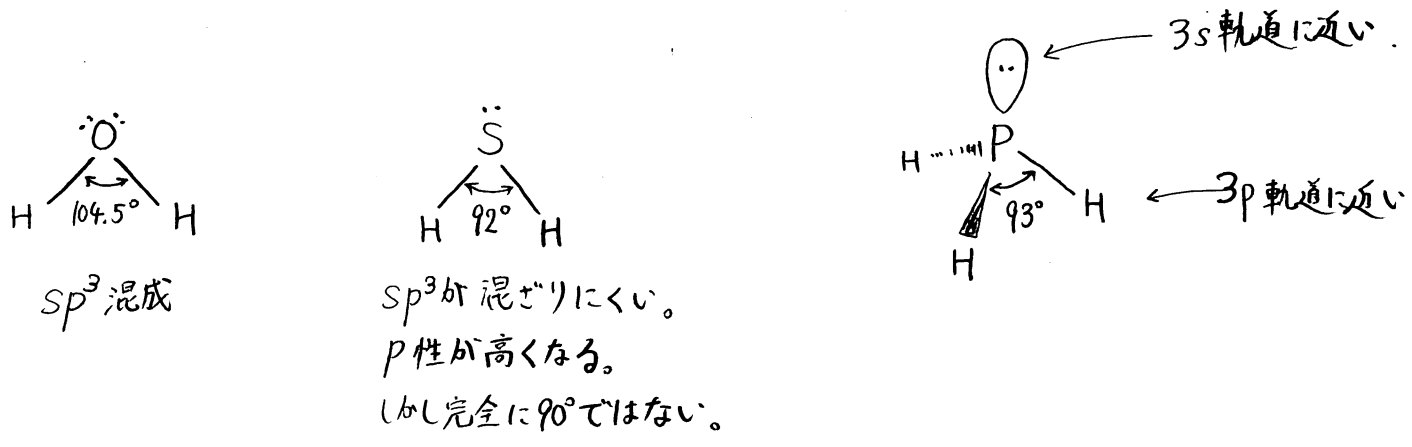 Ö
H 104.5° H
sp³混成
S̈
H 92° H
sp³が混ざりにくい。
p性が高くなる。
しかし完全に90°ではない。
3s軌道に近い.
H P
93° H
H
3p軌道に近い